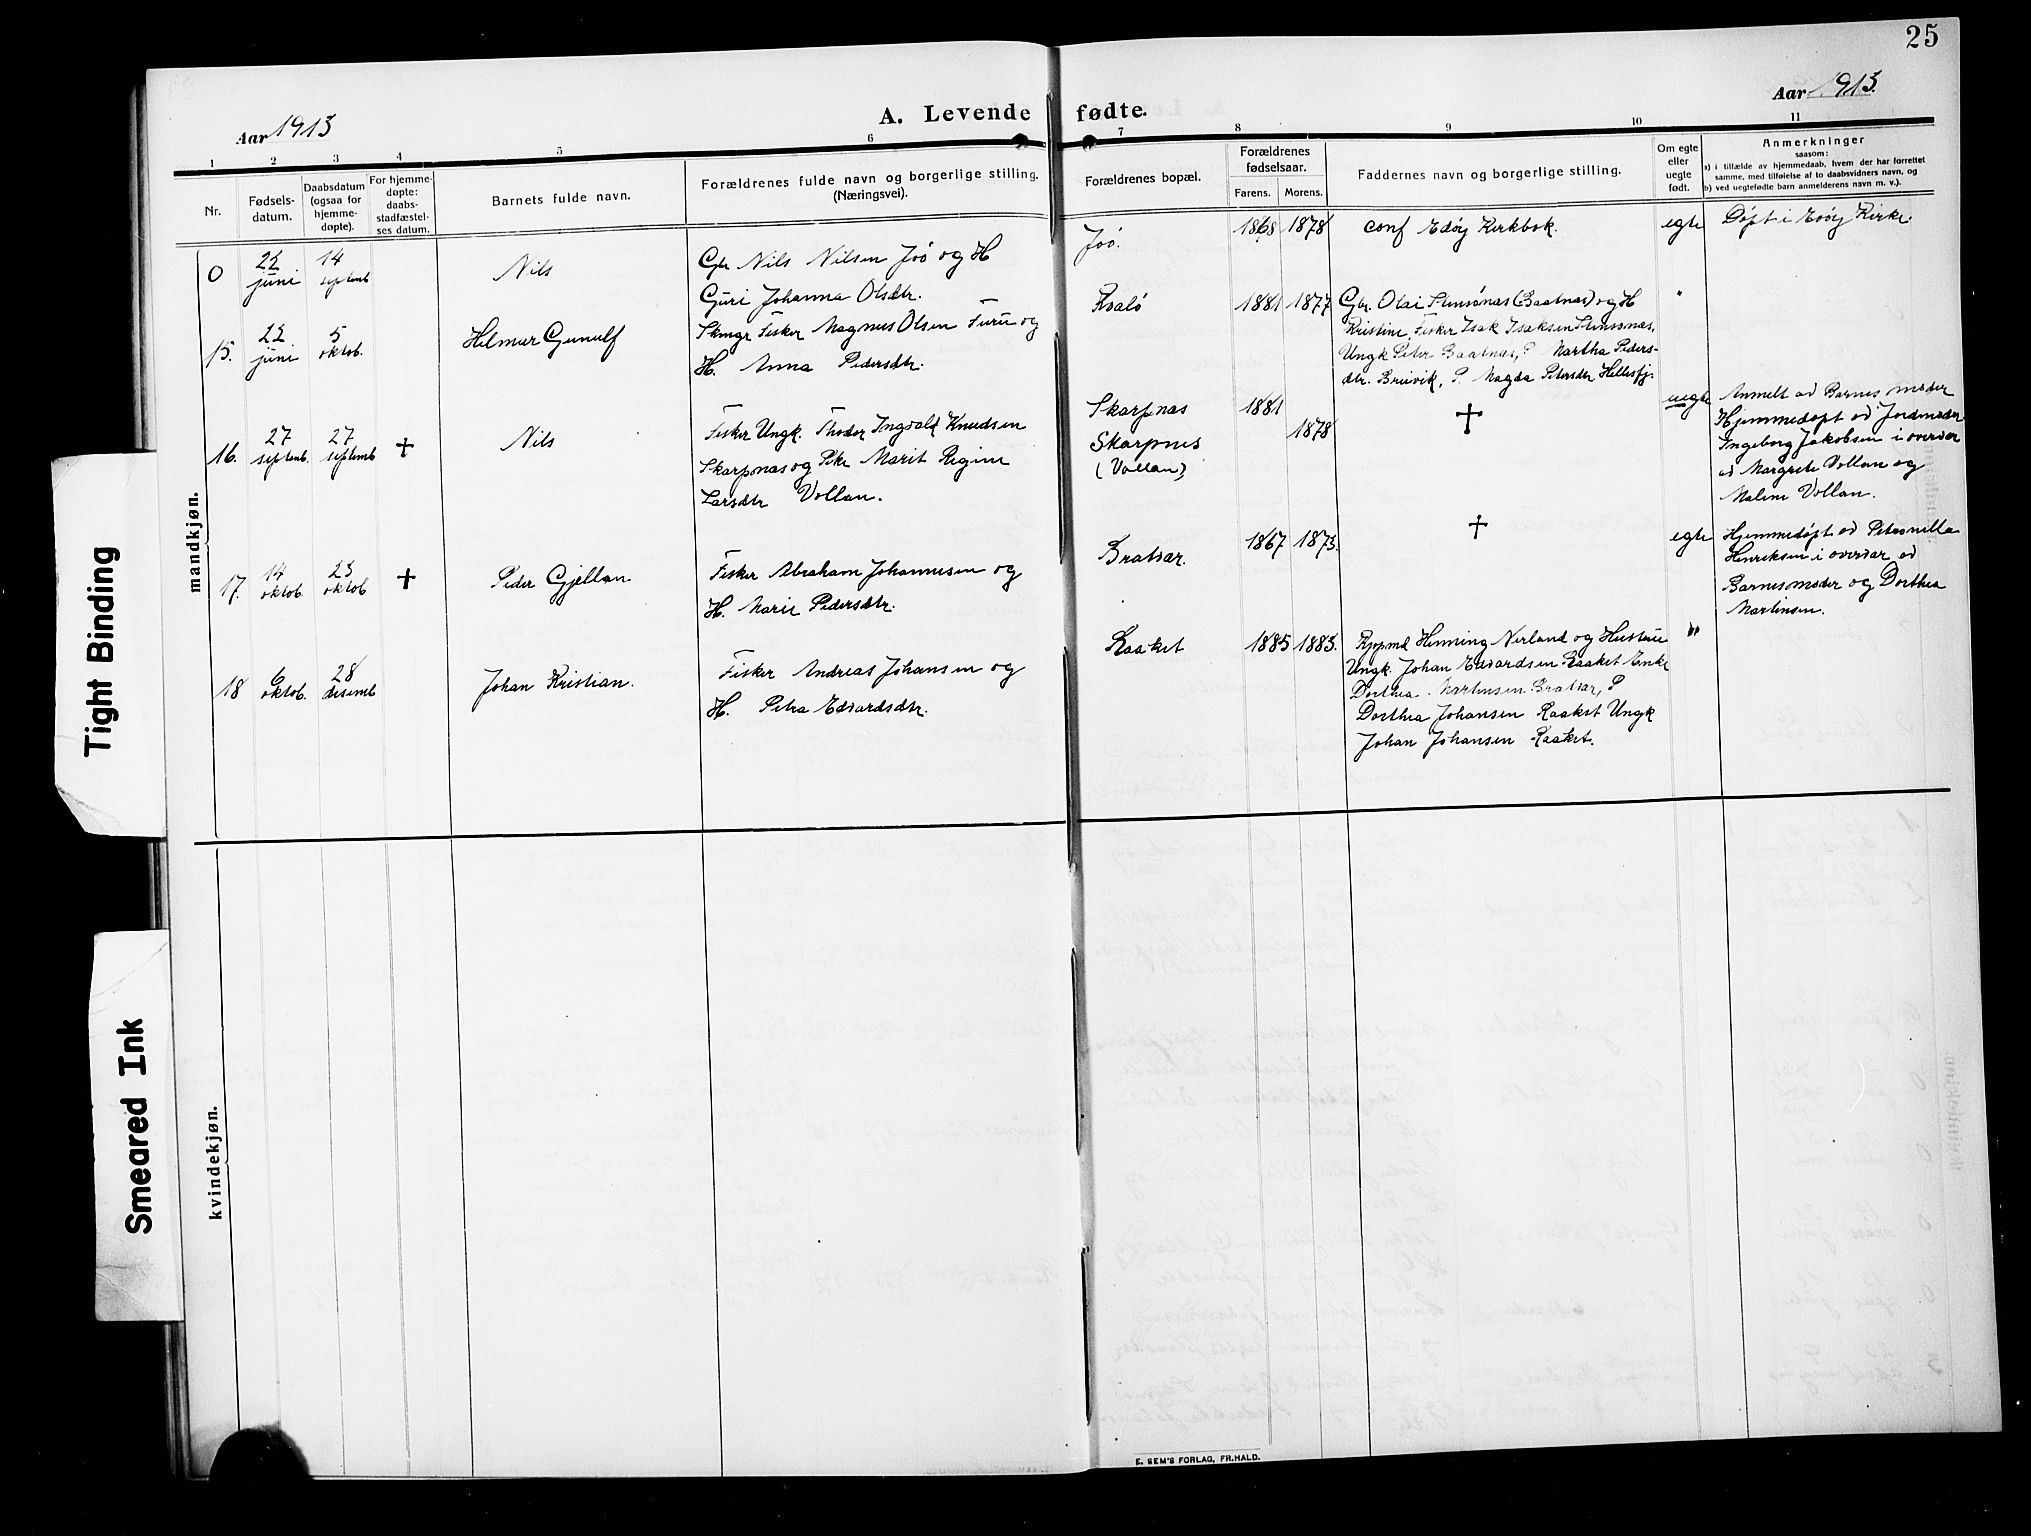 25
Aar 1913
A. Levende fødte.
Aar 1913.
1 2 3 4 5 6 7 8 9 10 11
Nr.
Fødsels-
datum.
Daabsdatum
(ogsaa for
hjemme-
døpte).
For hjemme-
døpte:
daabs-
stadfæstel-
ses datum.
Barnets fulde navn.
Forældrenes fulde navn og borgerlige stilling.
(Næringsvei).
Forældrenes bopæl.
Forældrenes
fødselsaar.
Farens. Morens.
Faddernes navn og borgerlige stilling.
Om egte
eller
uegte
født.
Anmerkninger
saasom:
a) i tilfælde av hjemmedaab, hvem der har forrettet
samme, med tilføielse af to daabsvidners navn, og
b) ved uegtefødte barn anmelderens navn m. v.).
mandkjøn.
0
22
juni
14
septemb
Nils
Gbr Nils Nilsen Joö og H
Guri Johanna Olsdtr.
Joö.
1868 1878
conf Edöy Kirkbok.
egte
Døpt i Edöy Kirke.
15.
22
juni
5
oktob.
Helmer Gunulf
Skmgr Fisker Magnus Olsen Furu og
H. Anna Pedersdtr.
Kvalö
1881 1877
Gbr. Olai Stensönas (Baatnas) og H
Kristine, Fisker Isak Isaksen Stenssnas,
Ungk Peter Baatnas, P Martha Peders-
dtr. Breivik, P. Magda Petersdtr Hellesfj.
"
16.
27
septemb.
27
septemb
+
Nils
Fisker Ungk. Theodor Ingvald Knudsen
Skarpnas og Pike Marit Regine
Larsdtr Vollan.
Skarpnas
Skarpnes
(Vollan)
1881
1878
+
uegte
Anmelt av Barnes moder
Hjemmedøpt av Jordmoder
Ingeborg Jakobsen i overvær
av Margrete Vollan og
Malene Vollan.
17.
14
oktob.
23
oktob
+
Peder Gjellan
Fisker Abraham Johannesen og
H. Marie Pedersdtr.
Bratvær.
1867 1873.
+
egte
Hjemmedøpt av Petronella
Henriksen i overvær av
Barnes moder og Dorthea
Martinsen.
18
6
oktob.
28
desemb
Johan Kristian.
Fisker Andreas Johansen og
H. Petra Edvardsdtr.
Raaket
1885 1883.
Kjøpmd Henning Nerland og Hustrue
Ungk. Johan Edvardsen Raaket Enke
Dorthea Martinsen Bratvær, P
Dorthea Johansen Raaket Ungk
Johan Johansen Raaket.
"
kvindekjøn.
E. SEM'S FORLAG, FR.HALD.
Tight Binding
Smeared Ink